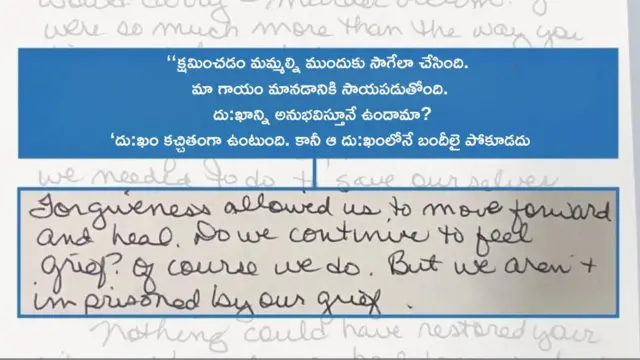 were so much more than the way you
“క్షమించడం మమ్మల్ని ముందుకు సాగేలా చేసింది.
మా గాయం మానడానికి సాయపడుతోంది.
దు:ఖాన్ని అనుభవిస్తూనే ఉందామా?
‘దు:ఖం కచ్చితంగా ఉంటుంది. కానీ ఆ దు:ఖంలోనే బందీలై పోకూడదు
we needed to do to save ourselves
Forgiveness allowed us to move forward
and heal. Do we continue to feel
grief? Of course we do. But we aren't
imprisoned by our grief.
Nothing could have restored your